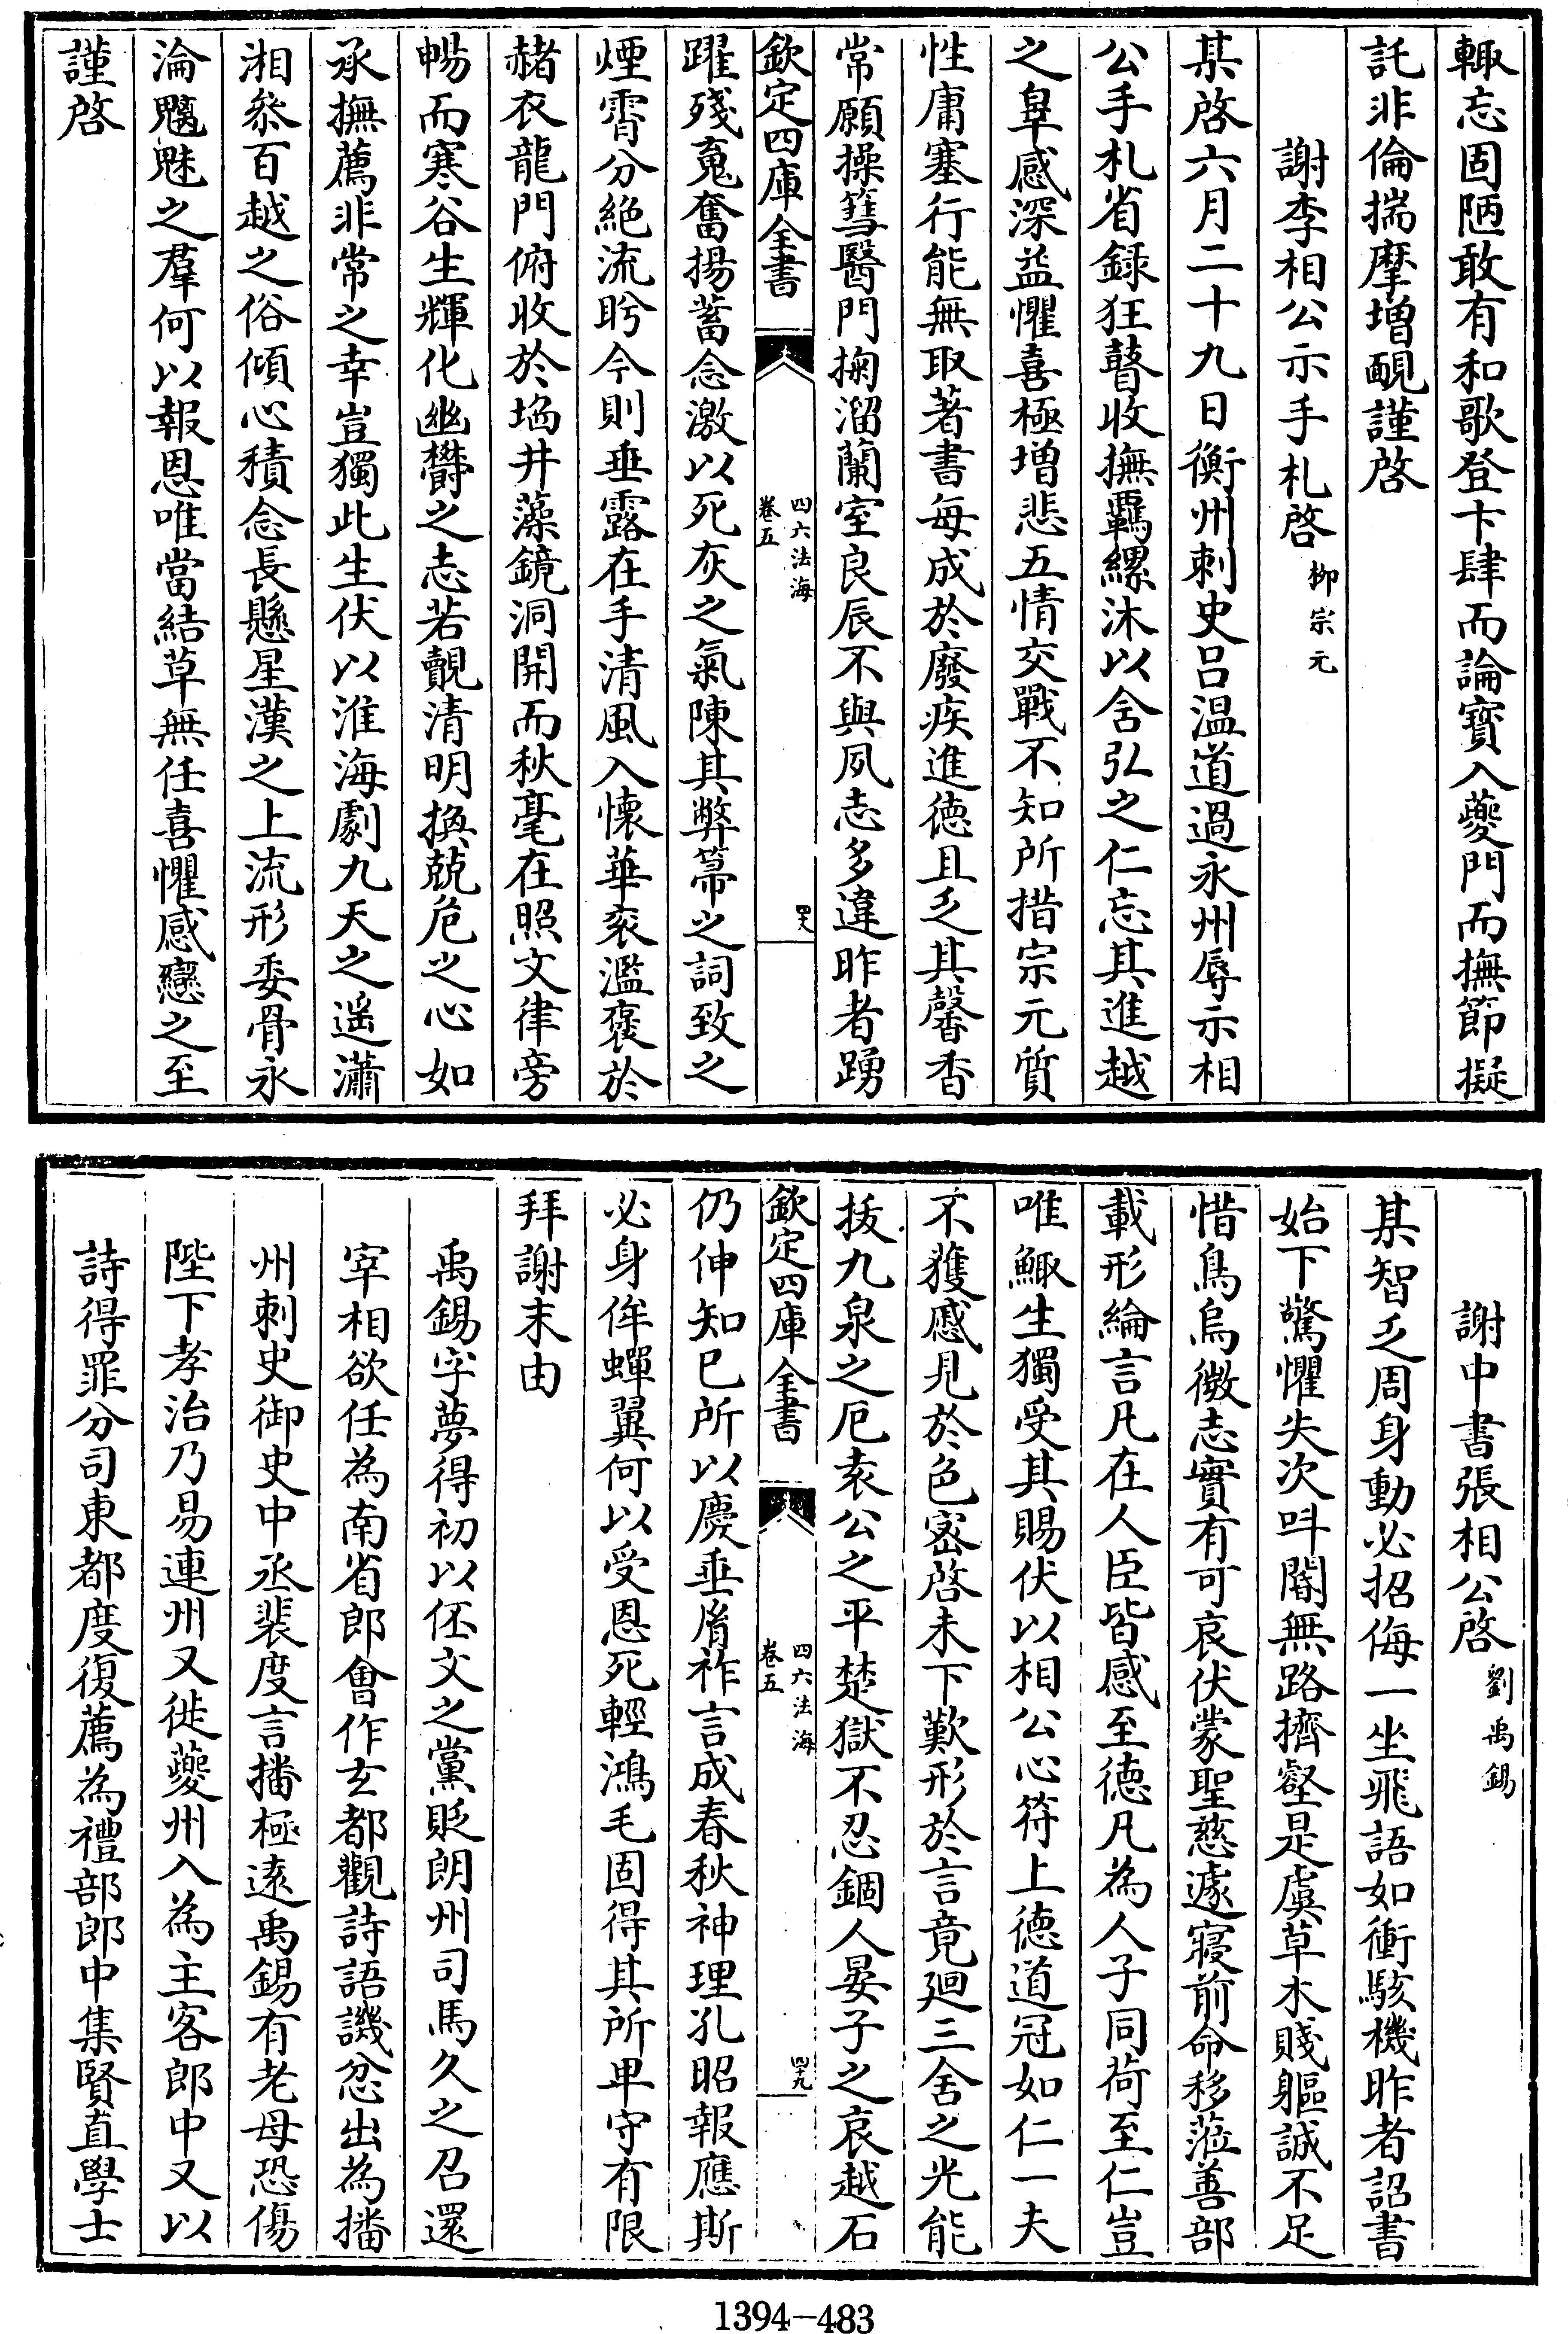 輙忘固陋敢有和歌登卞肆而論寳入夔門而撫節擬
託非倫揣摩増靦謹啓
謝李相公示手札啓 栁宗元
某啓六月二十九日衡州刺史吕温道過永州辱示相
公手札省録狂瞽收撫羈縲沐以含弘之仁忘其進越
之辠感深益懼喜極増悲五情交戰不知所措宗元質
性庸塞行能無取著書每成於廢疾進徳且乏其馨香
常願操篲醫門掬溜蘭室良辰不與夙志多違昨者踴
欽定四庫全書
四六法海
卷五
四十八
躍殘䰟奮揚蓄念激以死灰之氣陳其弊箒之詞致之
煙霄分絶流眄今則垂露在手清風入懐華衮濫褒於
赭衣龍門俯收於埳井藻鏡洞開而秋毫在照文律旁
暢而寒谷生輝化幽欝之志若覿清明換兢危之心如
承撫薦非常之幸豈獨此生伏以淮海劇九天之遥瀟
湘叅百越之俗傾心積念長懸星漢之上流形委骨永
淪魑魅之羣何以報恩唯當結草無任喜懼感戀之至
謹啓
謝中書張相公啓 劉禹錫
某智乏周身動必招侮一坐飛語如衝駭機昨者詔書
始下驚懼失次呌閽無路擠壑是虞草木賤軀誠不足
惜鳥烏微志實有可哀伏蒙聖慈遽寢前命移蒞善部
載形綸言凡在人臣皆感至徳凡為人子同荷至仁豈
唯鯫生獨受其賜伏以相公心符上徳道冠如仁一夫
不獲慼見於色密啓未下歎形於言竟廻三舍之光能
拔九泉之厄袁公之平楚獄不忍錮人晏子之哀越石
欽定四庫全書
四六法海
卷五
四十九
仍伸知已所以慶垂胤祚言成春秋神理孔昭報應斯
必身侔蟬翼何以受恩死輕鴻毛固得其所卑守有限
拜謝末由
禹錫字夢得初以伾文之黨貶朗州司馬久之召還
宰相欲任為南省郎㑹作玄都觀詩語譏忿出為播
州刺史御史中丞裴度言播極逺禹錫有老母恐傷
陛下孝治乃易連州又徙夔州入為主客郎中又以
詩得罪分司東都度復薦為禮部郎中集賢直學士
1394-483